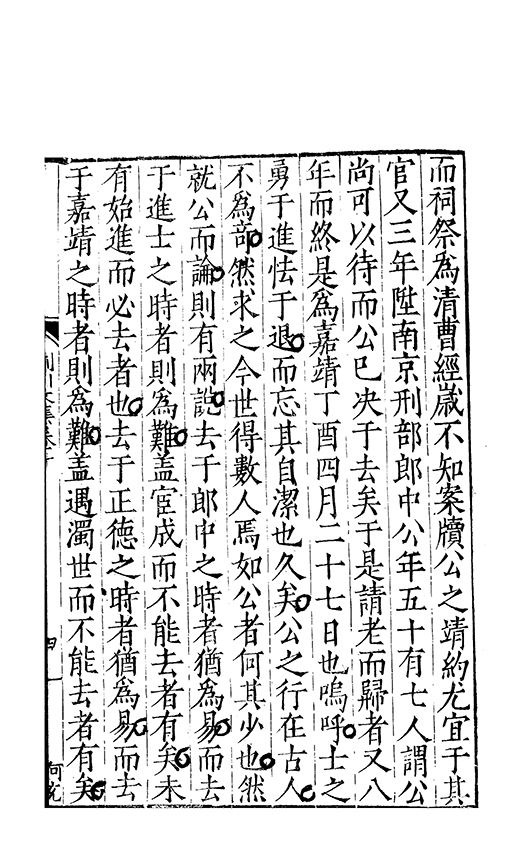 而祠祭爲清曹經歲不知案牘公之靖約尤宜于其
官又三年陞南京刑部郎中公年五十有七人謂公
尚可以待而公已决于去矣于是請老而歸者又八
年而終是爲嘉靖丁酉四月二十七日也嗚呼士之
勇于進怯于退而忘其自潔也久矣公之行在古人
不爲竒然求之今世得數人焉如公者何其少也然
就公而論則有兩說去于郎中之時者猶為易而去
于進士之時者則爲難盖宦成而不能去者有矣未
有始進而必去者也去于正德之時者猶爲易而去
于嘉靖之時者則爲難盖遇濁世而不能去者有矣